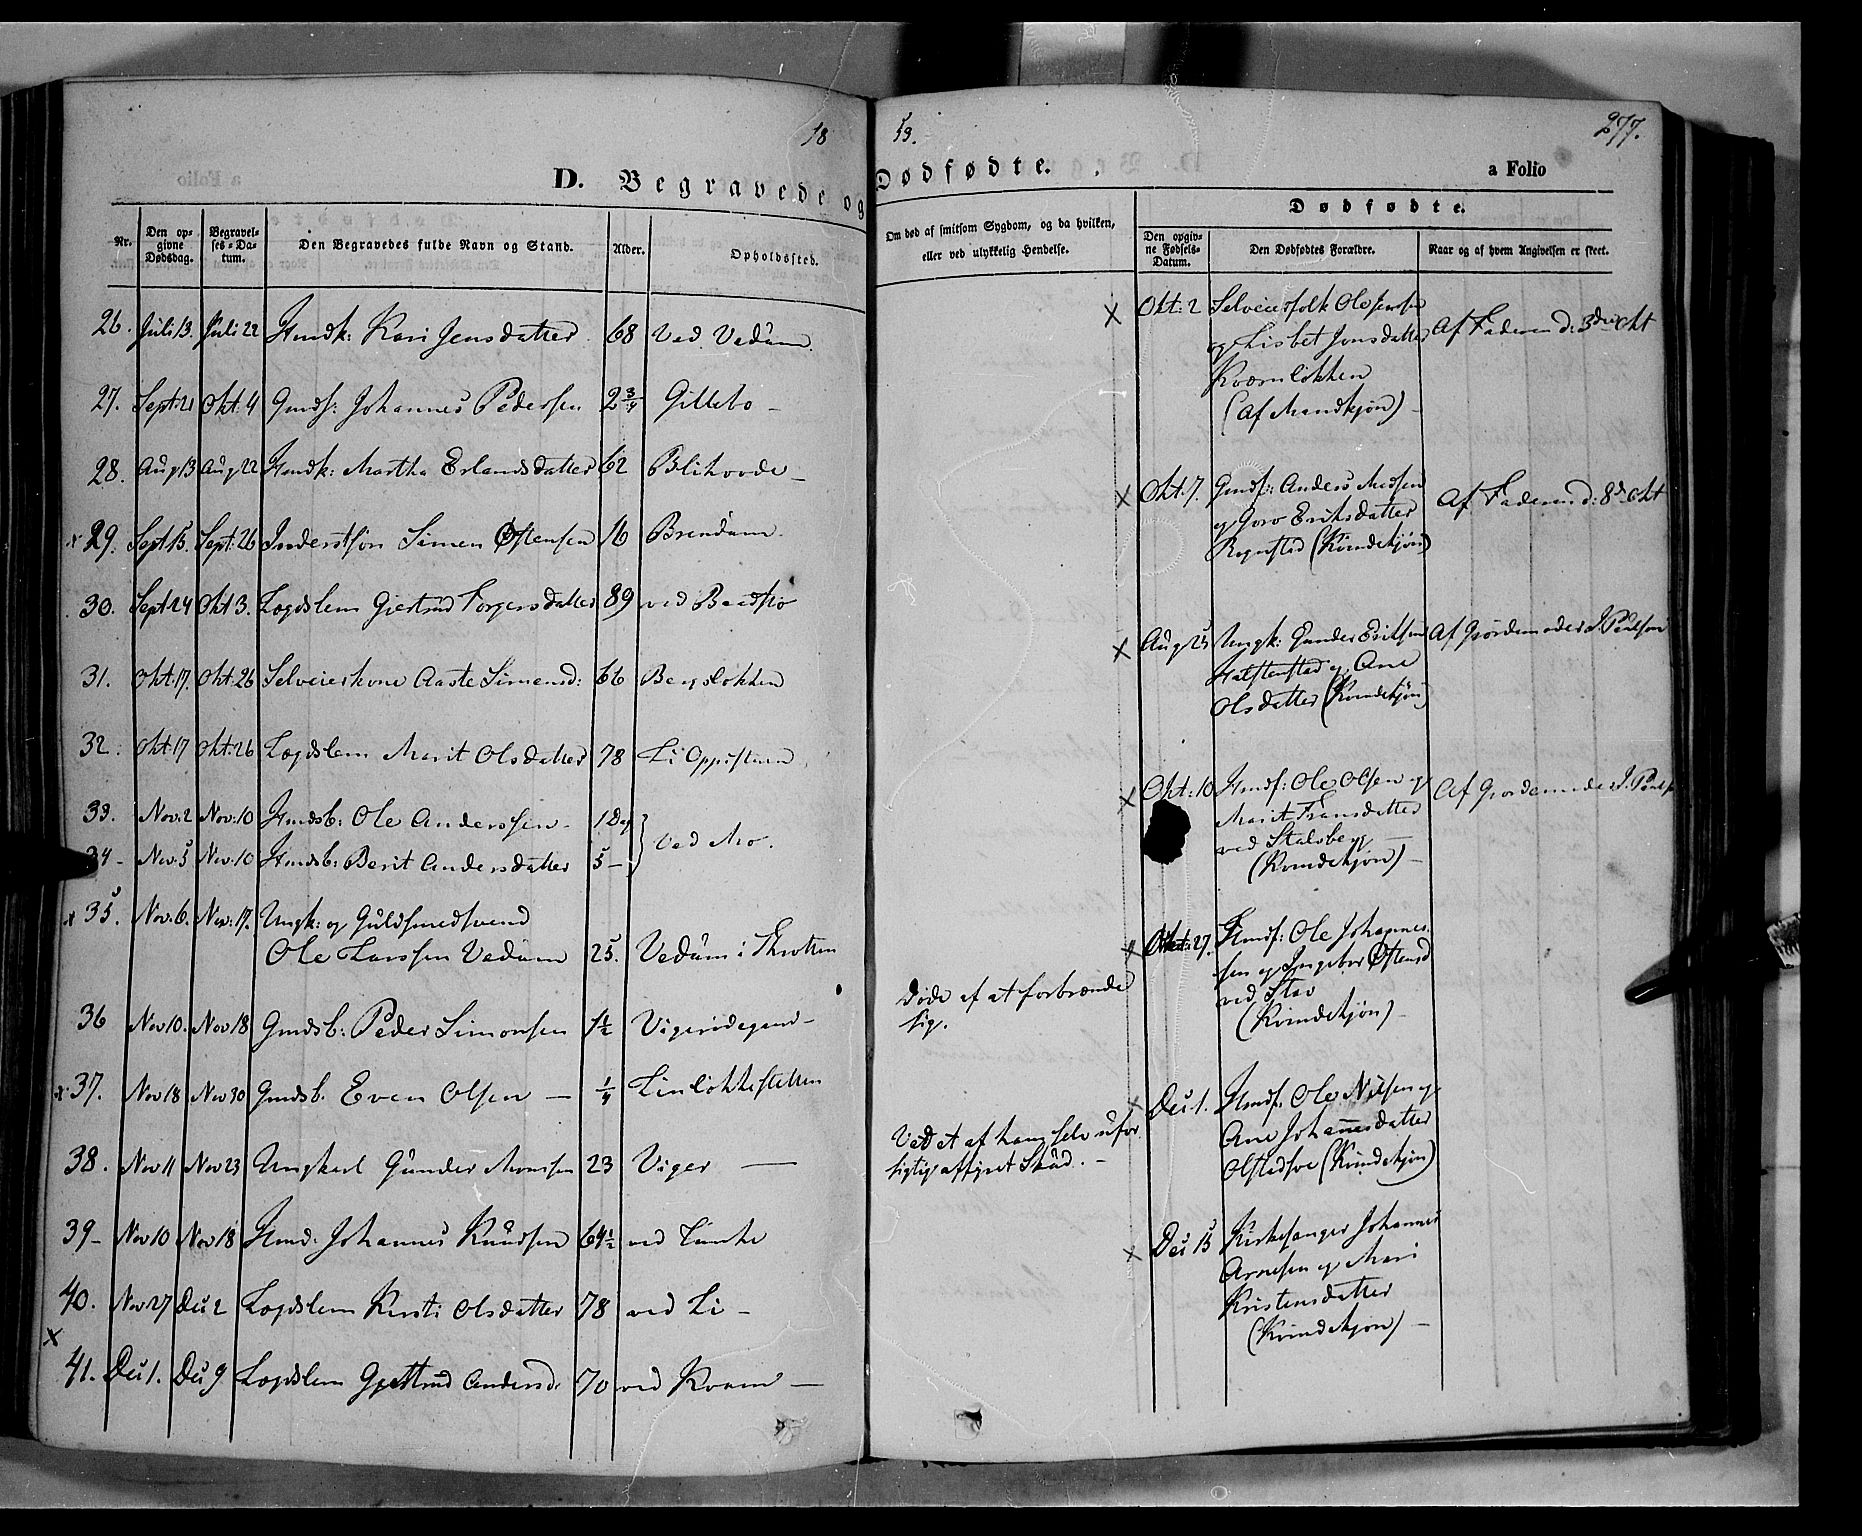 18
53.
277.
D. Begravede og Dødfødte.
a Folio
Nr.
Den opgivne Dødsdag.
Begravelses-Datum.
Den Begravedes fulde Navn og Stand.
Alder.
Opholdssted.
Om død af smitsom Sygdom, og da hvilken,
eller ved ulykkelig Hendelse.
Dødfødte.
Den opgivne Fødsels-Datum.
Den Dødfødtes Forældre.
Naar og af hvem Angivelsen er skeet.
26. Juli 13. Juli 22 Huusk: Kari Jensdatter. 68 Ved Vedum.
27. Sept: 21 Okt. 4 Gmds: Johannes Pedersen 2 3/4 Gillebo –
28. Aug 13 Aug 22 Huusk: Martha Erlandsdatter 62 Blihovde –
x 29. Sept 15. Sept: 26 Inderstsön Simen Østensen 16 Brendum.
30. Sept 24 Okt 3. Lægdslem Gjertrud Torgersdatter 89 ved Baadstø
31. Okt. 17. Okt: 26 Selveierkone Aaste Simensd: 66 Bergsløkken
32. Okt: 17 Okt: 26 Lægdslem Marit Olsdatter 78 Li Oppistuen
33. Nov: 2 Nov: 10 Huusb: Ole Anderssen – 1 Dag
34 – Nov: 5 Nov: 10 Huusb: Berit Andersdatter 5 – } Ved Mo.
x 35. Nov: 6. Nov: 17. Ungk: og Guldsmedsvend
Ole Larssen Vedum 25. Vedum i Throtten
36 Nov 10. Nov 18 Gmdsb: Peder Simonsen 1 1/2 Vigerødegaard –
Døde af at forbrænde
sig.
x 37. Nov 18 Nov 30 Gmdsb. Even Olsen – 1/4 Linløkkestellen
38. Nov 11 Nov 23 Ungkarl Gunder Monsen 23 Viger –
Ved et af ham selv ufor
sigtig affyret Skud. –
39 – Nov 10 Nov 18 Hmd: Johannes Knudsen 64 1/2 ved Tunke
40. Nov 27 Dec 2 Lægdslem Kirsti Olsdatter 78 ved Li –
x
41. Dec 1. Dec 9 Lægdslem Gjertrud Andersd. 70 ved Kvam –
x Okt: 2 Selveierfolk Ole Jensen
og Lisbet Jonsdatter
Kværnløkken
(af Mandkjøn) –
Af Faderen d: 3die Okt
x Okt. 7. Gmdf: Anders Madsen
og Goro Eriksdatter
Rognstad (Kvindekjøn)
Af Faderen d: 8de Okt
x Aug 25 Ungk: Gunder Eriksen
Halstenstad og Ane
Olsdatter (Kvindekjøn)
Af Gjordemoder I. Paulsen
x Okt: 10 Hmdf: Ole Olsen og
Marit Fransdatter
ved Stalsberg –
(Kvindekjøn) –
Af Gjordemoder I. Pauls
x Okt: 27. Hmdf: Ole Johannes
sen og Ingebor Østensd
ved Stav
(Kvindekjøn) –
x Dec 1. Hmdf: Ole Nilsen og
Ane Johannesdatter
Olstadsve (Kvindekjøn)
x Dec 15 Kirkesanger Johannes
Arnesen og Mari
Kristensdatter
(Kvindekjøn) –